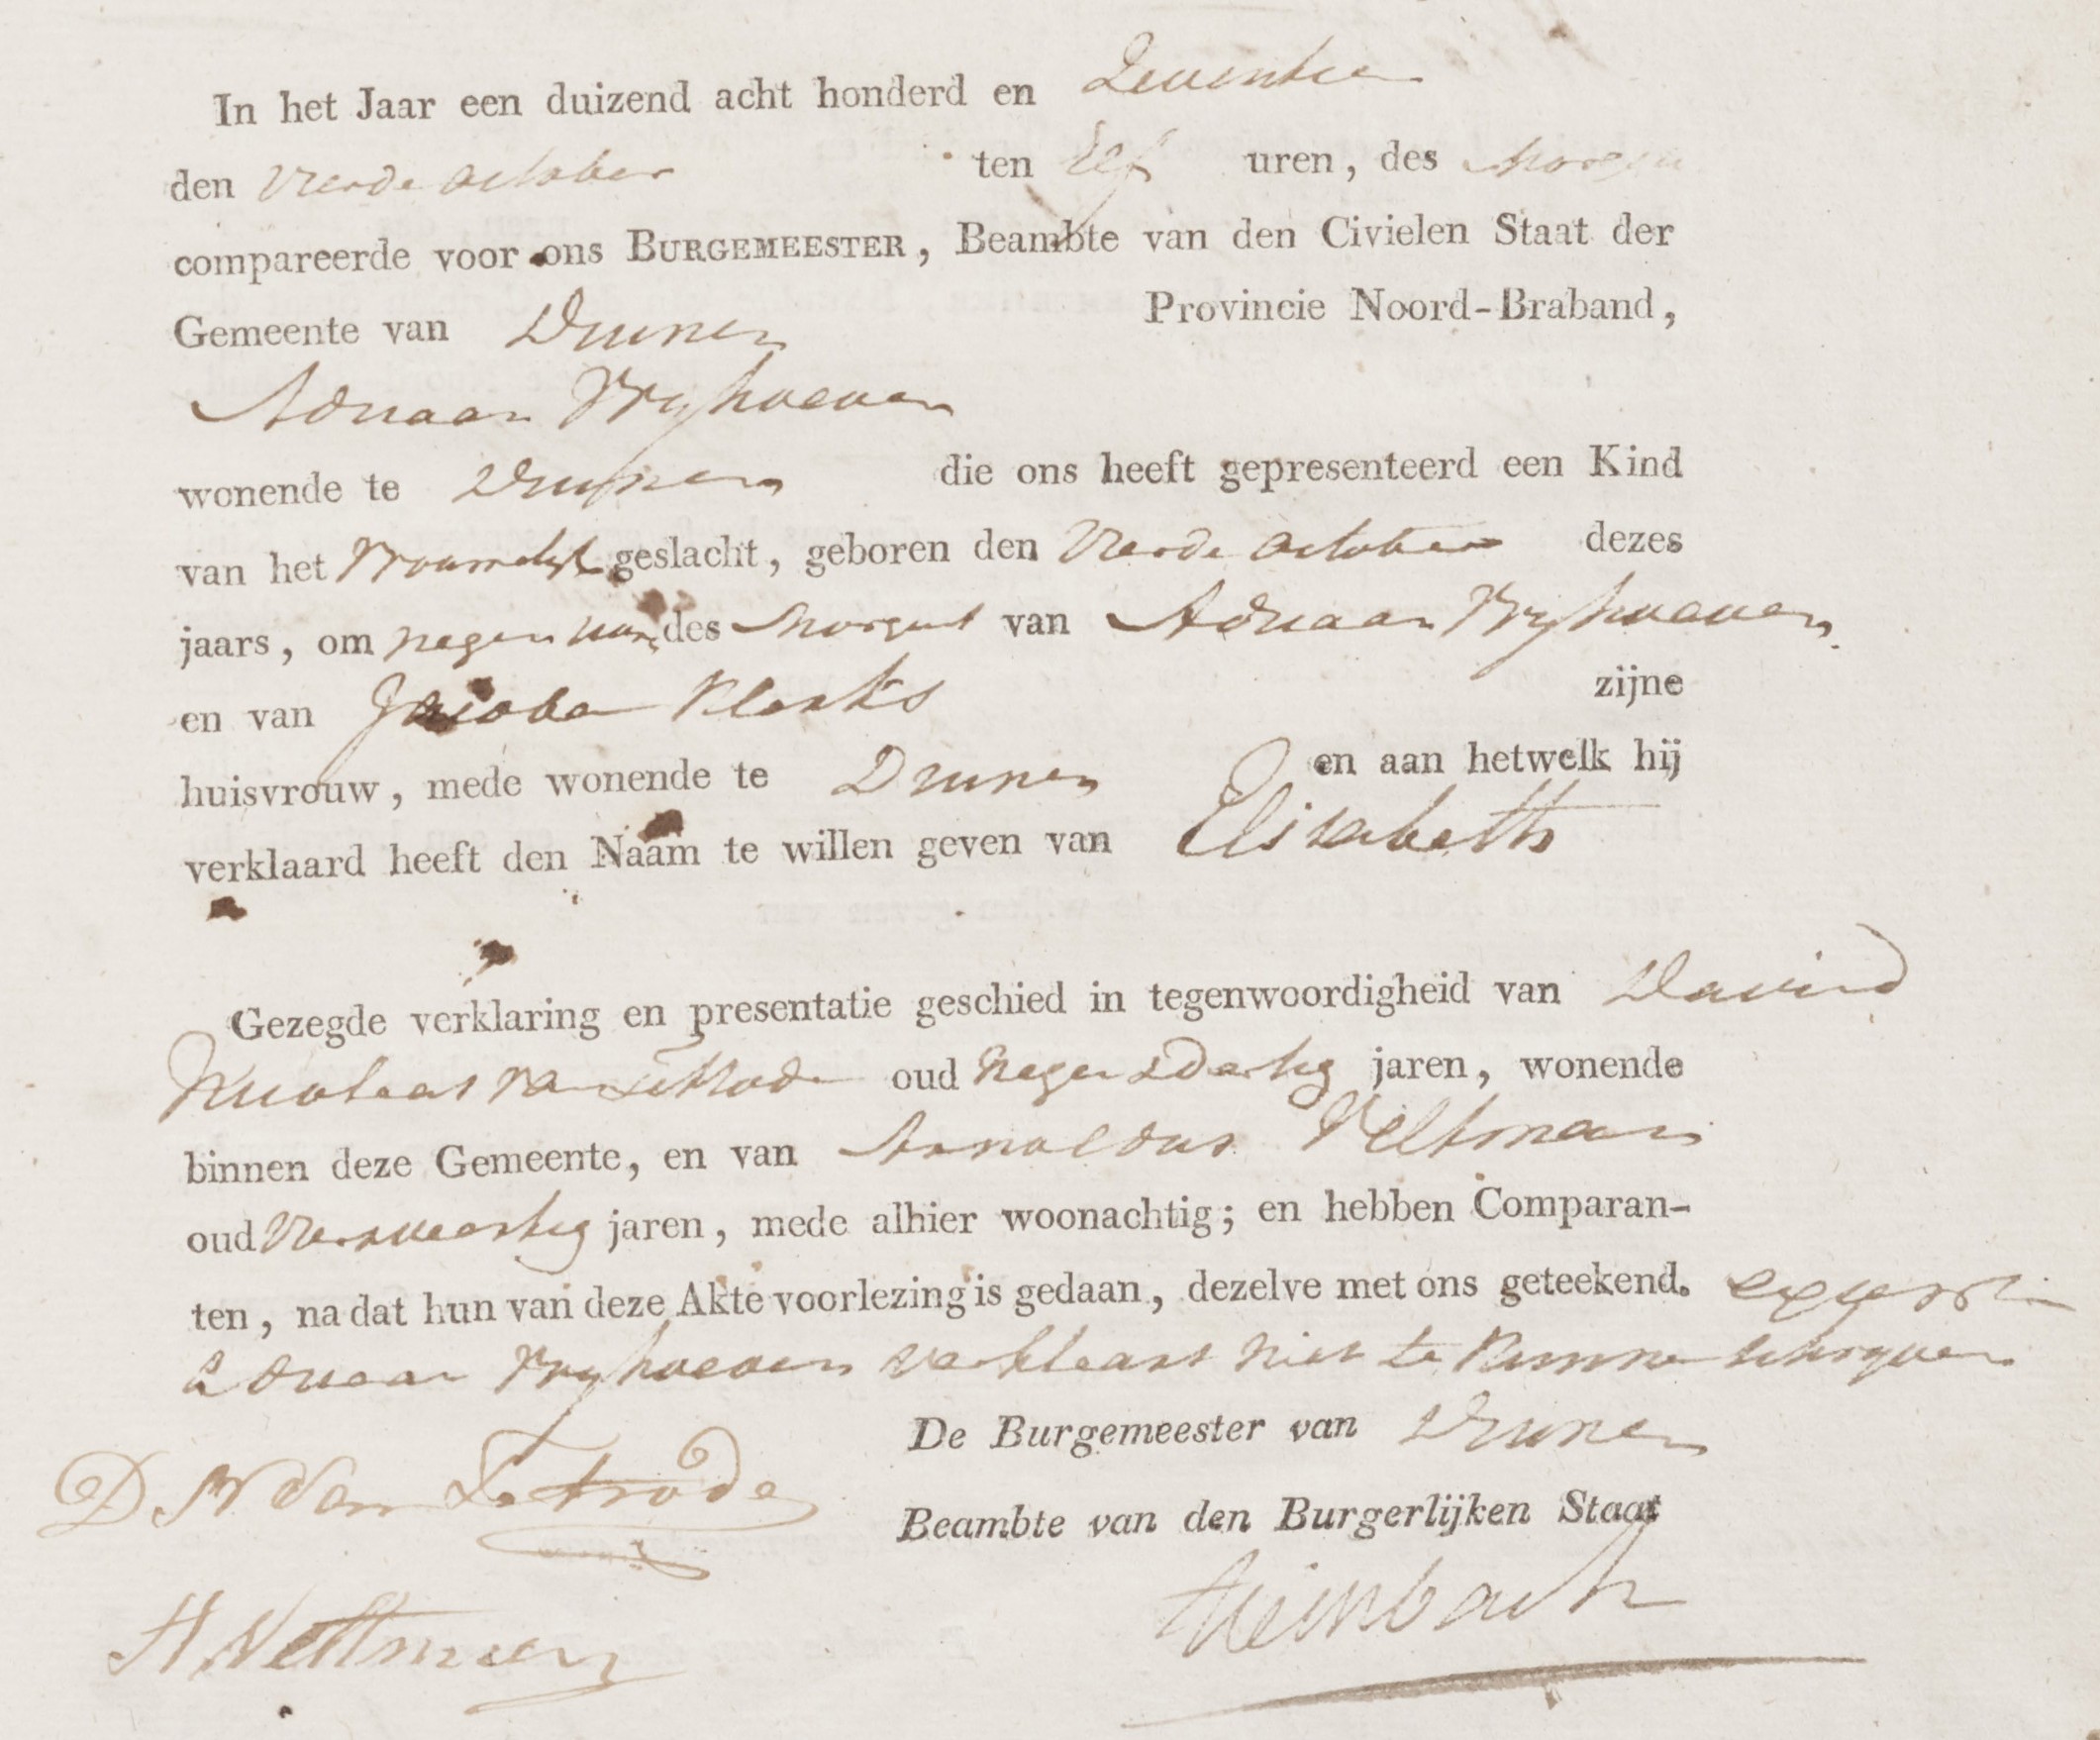 In het Jaar een duizend acht honderd en Zeventien
den Vierde October ten Elf uren, des Morgens
compareerde voor ons BURGEMEESTER, Beambte van den Civielen Staat der
Gemeente van Drunen Provincie Noord-Braband,
Adriaan Vryhoeven
wonende te Drunen die ons heeft gepresenteerd een Kind
van het Vrouwelijk geslacht, geboren den Vierde October dezes
jaars, om negen uur des Morgens van Adriaan Vryhoeven
en van Jacoba Klerks zijne
huisvrouw, mede wonende te Drunen en aan hetwelk hij
verklaard heeft den Naam te willen geven van Elisabeth
Gezegde verklaring en presentatie geschied in tegenwoordigheid van David
Nicolaas van Tetrode oud Negen & Dertig jaren, wonende
binnen deze Gemeente, en van Arnoldus Veltman
oud Vier & Veertig jaren, mede alhier woonachtig; en hebben Comparan-
ten, na dat hun van deze Akte voorlezing is gedaan, dezelve met ons geteekend.
Adriaan Vryhoeven verklaart niet te kunnen schryven
De Burgemeester van Drunen
D N Van Tetrode
Beambte van den Burgerlijken Staat
A Veltman